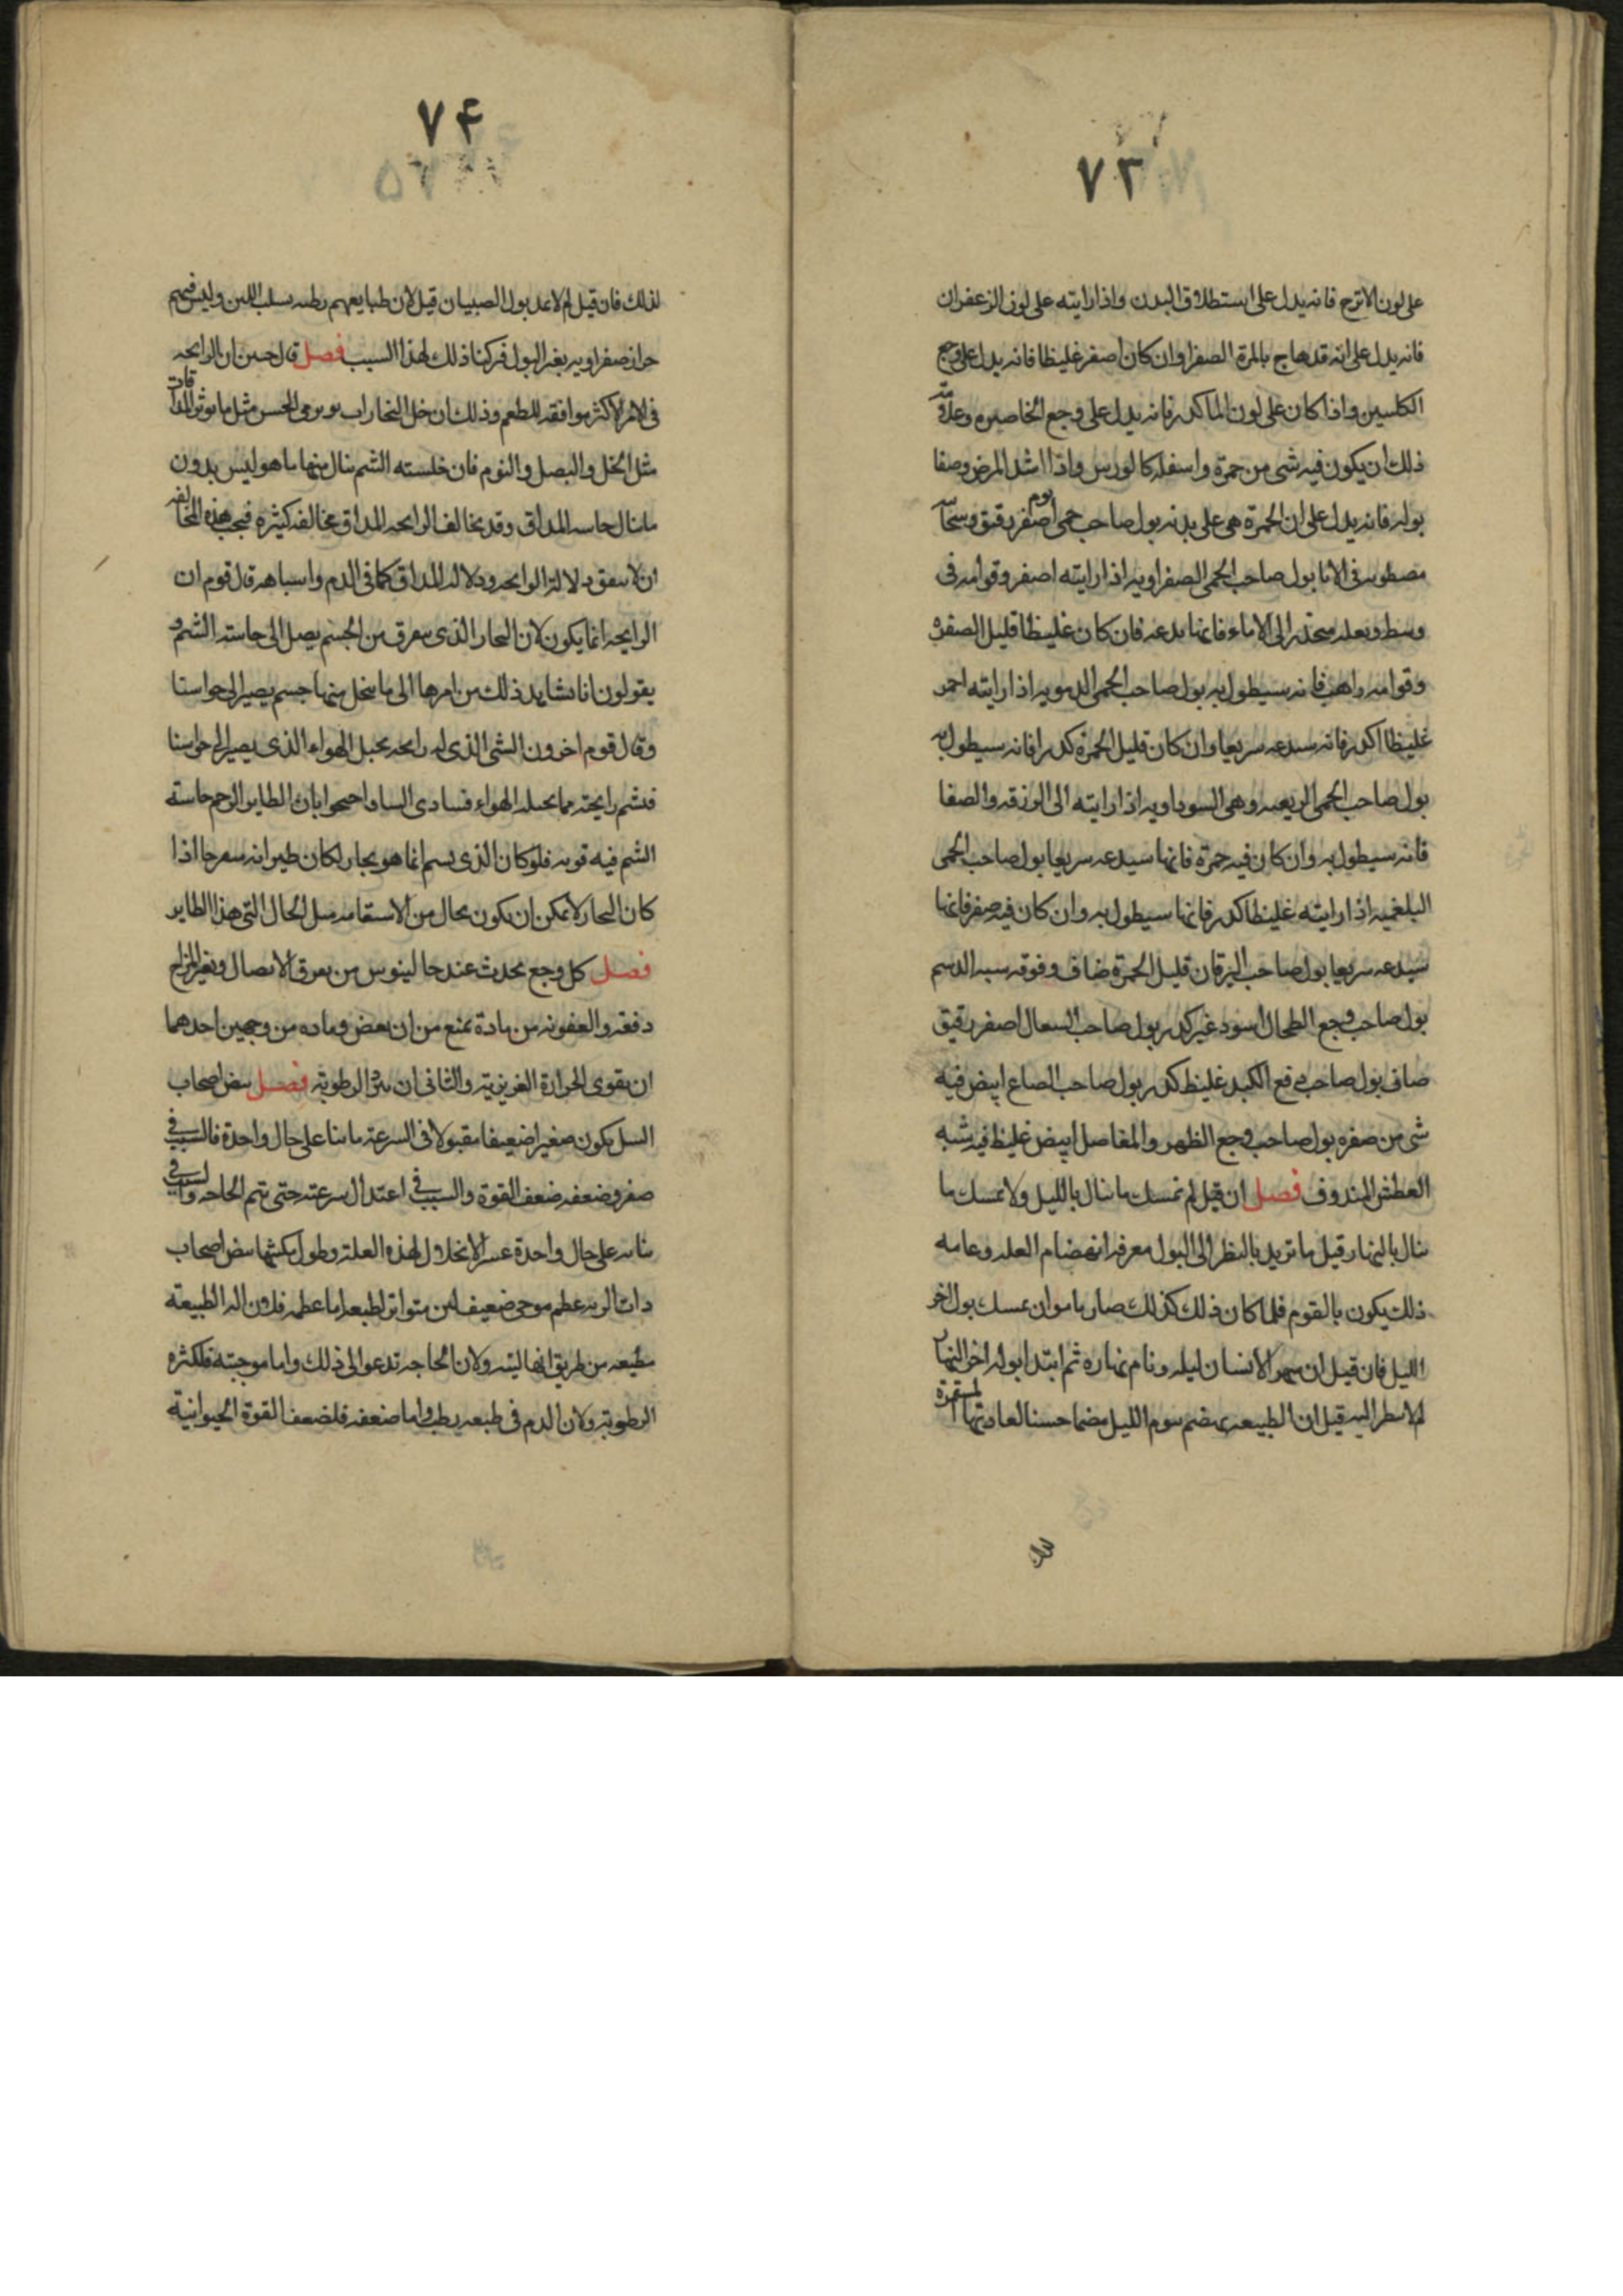 ٧٣
على لون الاترج فانه يدل على استطلاق البدن واذا رايته على لون الزعفران
فانه يدل على انه قد هاج بالمرة الصفرا وان كان اصفر غليظا فانه يدل على وجع
الكلسين واذا كان على لون الما كدر فانه يدل على وجع الخاصره وعلامة
ذلك ان يكون فيه شى من حمرة واسفله كالورس واذا اشتد المرض وصفا
بوله فانه يدل على ان الحمرة هى على بدنه بول صاحب حمى يوم اصفر رقيق
فى الانا بول صاحب الحمى الصفراويه اذا رايته اصفر وقوامه فى
وسط الى الاماء فانها تدعه فان كان غليظا قليل الصفره
وقوامه فانه سيطول به بول صاحب الحمى الدمويه اذا رايته احمر
غليظا اكدر فانه سيدعه سريعا وان كان قليل الحمرة كدرا فانه سيطول به
بول صاحب الحمى الربعيه وهى السوداويه اذا رايته الى الزرقه والصفا
فانه سيطول به وان كان فيه حمرة فانها سيدعه سريعا بول صاحب الحمى
البلغميه اذا رايته غليظا كدر فانها سيطول به وان كان فيه صفر فانها
سيدعه سريعا بول صاحب اليرقان قليل الحمرة صاف وفوقه سبه الدسم
بول صاحب وجع الطحال اسود غير كدر بول صاحب السعال اصفر رقيق
صاف بول صاحب وجع الكبد غليظ كدر بول صاحب الصاع ابيض فيه
شى من صفره بول صاحب وجع الظهر والمفاصل ابيض غليظ فيه شبه
المندوف فصل ان قيل لم نمسك ما سال بالليل ولا نمسك ما
سال بالنهار قيل ما تريد بالنظر الى البول معرفه انهضام العله وعامه
ذلك يكون بالقوم فلما كان ذلك كذلك صار ياموا ان نمسك بول اخر
الليل فان قيل ان سهر الانسان ليله ونام نهاره ثم ابتدا بوله اخر النهار
لم لا سطر اليه قيل ان الطبيعه يهضم سوم الليل هضما حسنا لعادتها المستمرة
٧۴
لذلك فان قيل لم لا نمد بول الصبيان قيل لان طبايعهم رطبه بسبب اللبن وليس فيهم
حراز صفراويه يغير البول فتركنا ذلك لهذا السبب فصل قال حنين ان الرايحه
فى الامر الاكثر موافقه للطعم وذلك ان خل البخارات يوثر فى الحس مثل ما يوثر المذاقات
مثل الخل والبصل والثوم فان حاسته الشم ينال منها ما هو ليس بدون
ما ينال حاسه المداق وقد يخالف الرايحه المداق مخالفه كثيره فيجب هذه المخالفه
ان لا سفق دلالة الرايحه ودلاله المداق كما فى الدم واسباهه قال قوم ان
الرايحه انما يكون لان البحار الذى يتفرق من الجسم يصل الى حاسته الشم و
يقولون انا نشاهد ذلك من امرها الى ما ينحل منها جسم يصير الى حواسنا
وقال قوم اخرون الشى الذى له رايحه يحيل الهواء الذى يصير الى حواسنا
فنشم رايحته مما يحيله الهواء فيتادى الينا واحتجوا بان الطاير الرخم حاسته
الشم فيه قويه فلو كان الذى يسم انما هو بحار لكان طيرانه اذا
كان البحار لا يمكن ان يكون بحال من الاستقامه مثل الحال التى هذا الطاير
فصل كل وجع يحدث عند جالينوس من تفرق الاتصال وتغير المزاج
دفعه والعفونه من مادة تمنع من ان يعفن وماده من وجهين احدهما
ان يقوى الحرارة الغريزيه والثانى ان الرطوبه فصل نبض اصحاب
السل يكون صغيرا ضعيفا مقبولا فى السرعه ثابتا على حال واحدة فالسبب فى
صغره وضعفه ضعف القوة والسبب فى اعتدال سرعته حتى يتم الحاجه والسبب فى
ثباته على حال واحدة عسر الانحلال لهذه العله وطول مكثها نبض اصحاب
ذات الريه عظيم موجى ضعيف لين متواتر لطبعه اما عظمه فلان اله الطبيعه
مطيعه من طريق انها لينه ولان الحاجه تدعوا الى ذلك واما موجيته فلكثره
الرطوبه ولان الدم فى طبعه رطب واما ضعفه فلضعف القوة الحيوانية